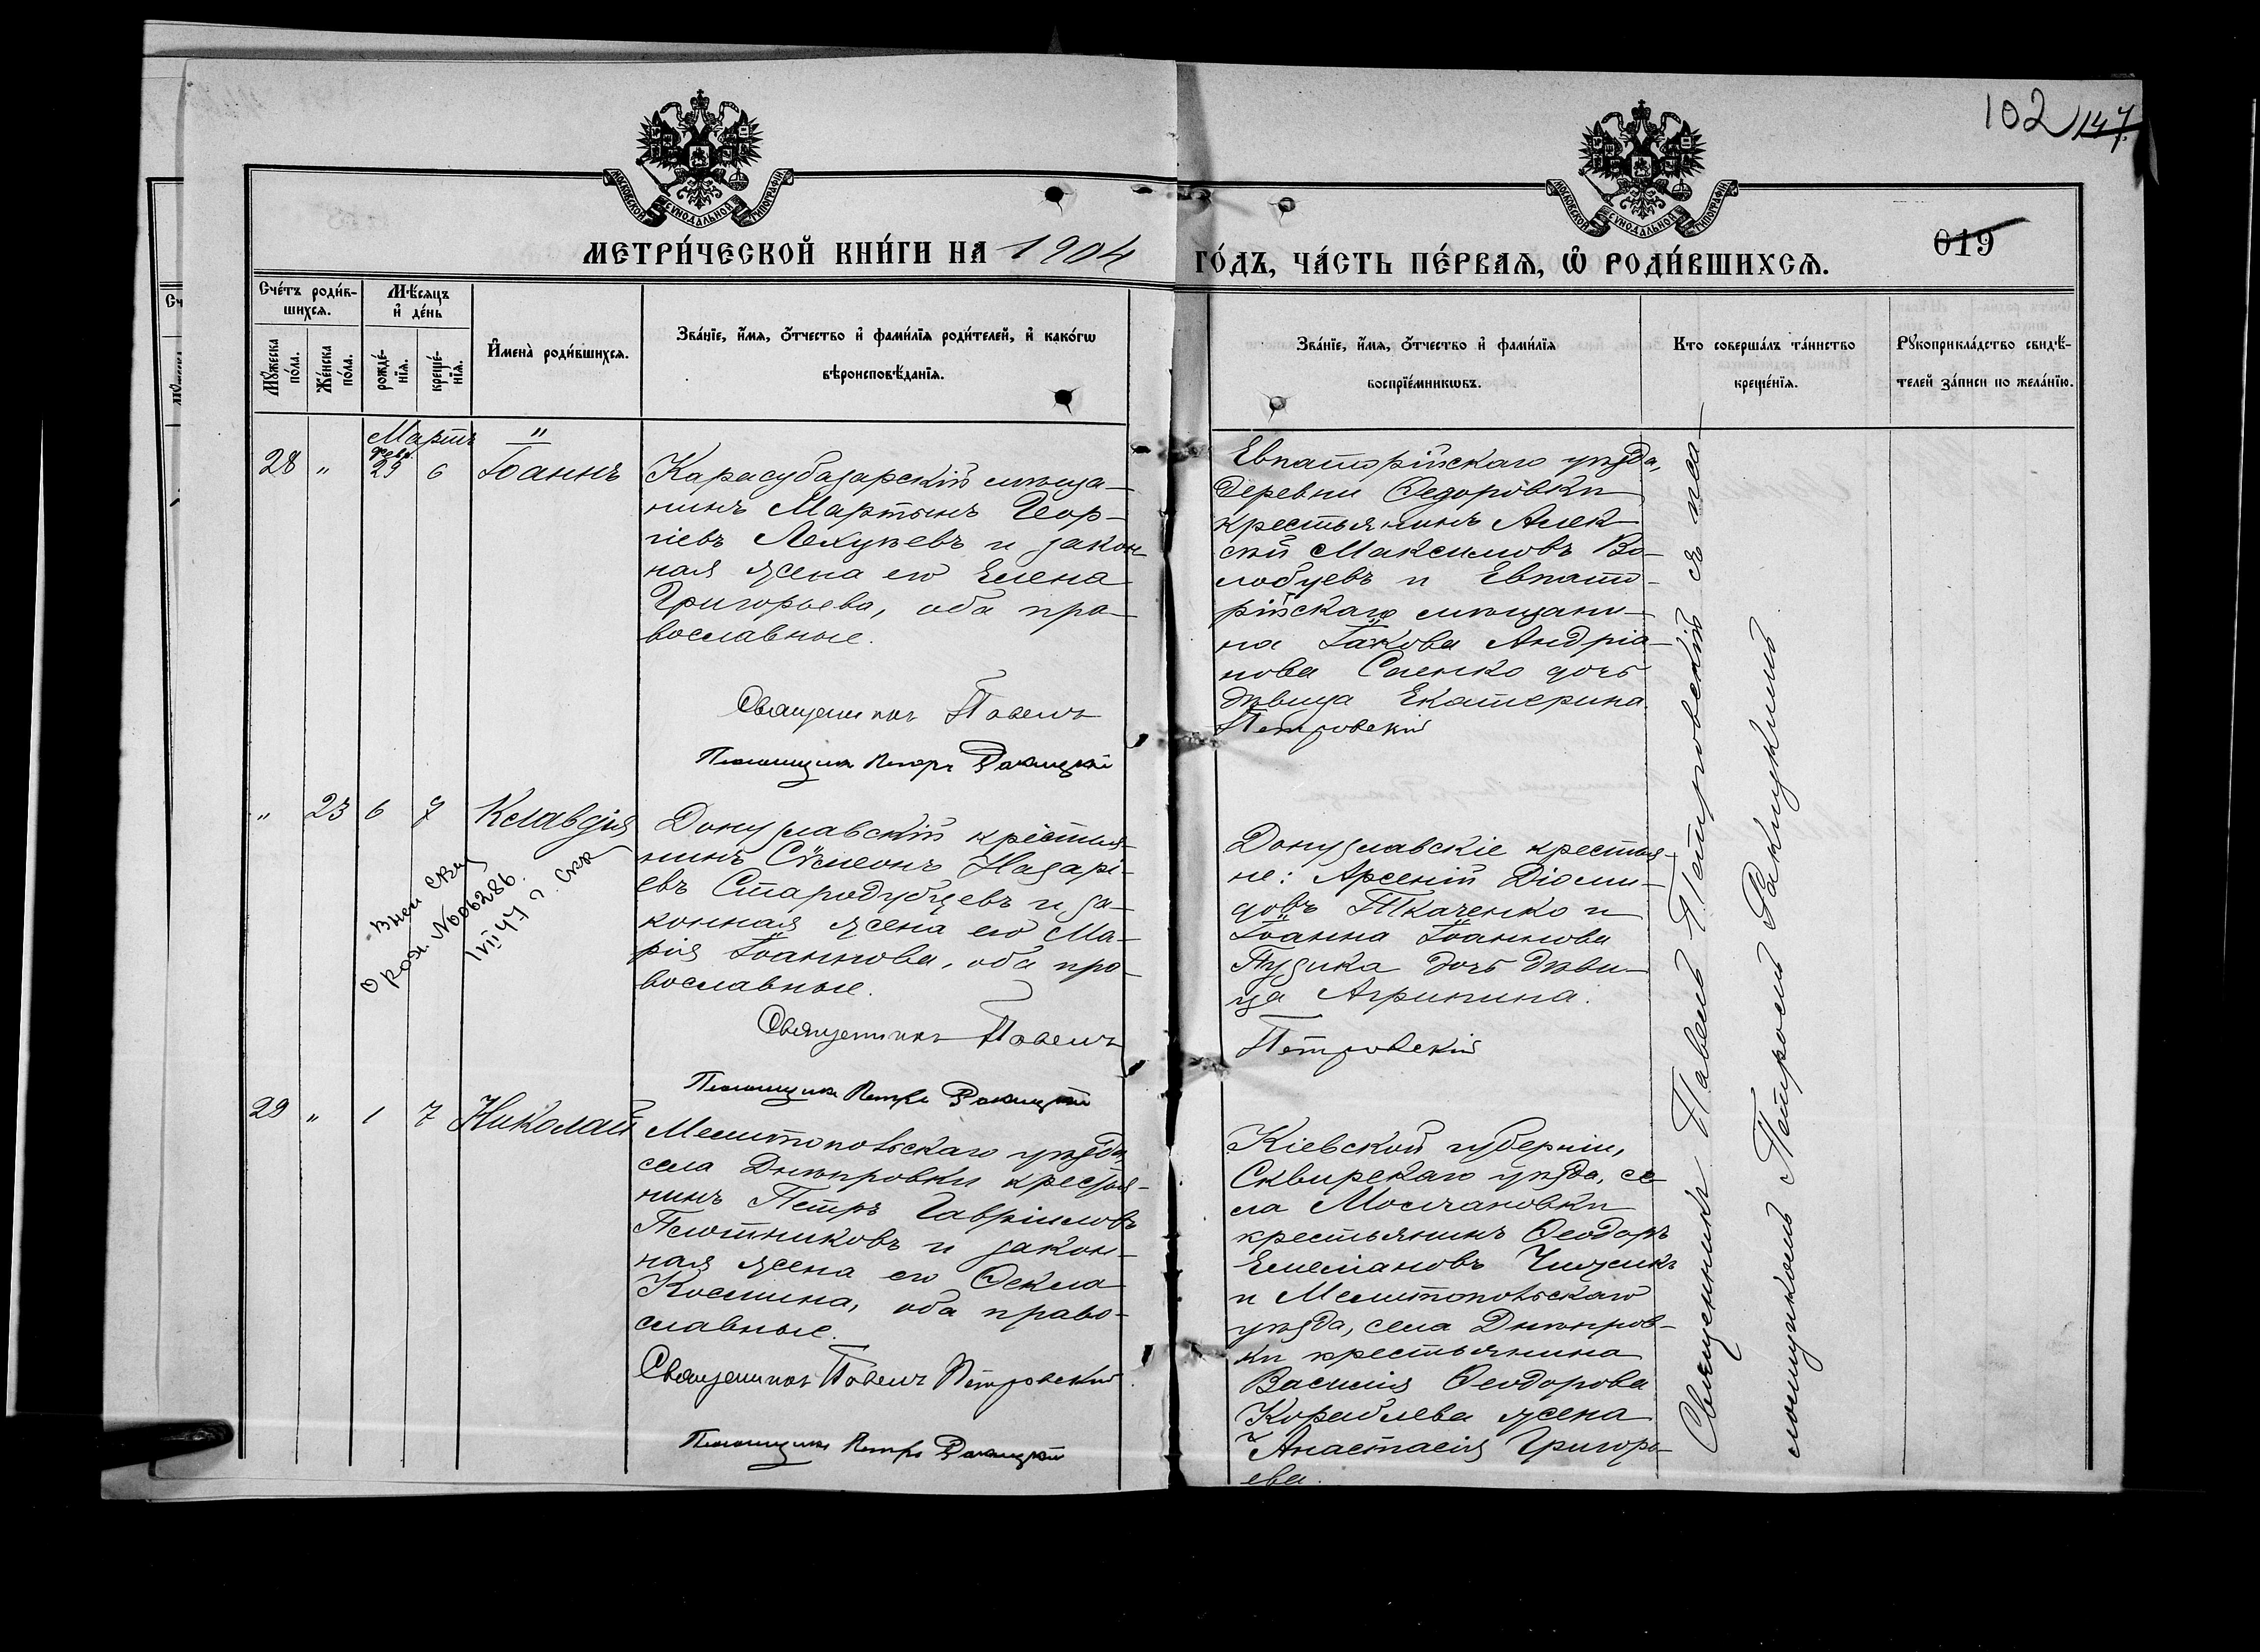 102 147
019
МОСКОВСКОЙ СѴНОДАЛЬНОЙ ТИПОГРАФІИ
МОСКОВСКОЙ СѴНОДАЛЬНОЙ ТИПОГРАФІИ
МЕТРИ́ЧЕСКОЙ КНИ́ГИ НА 1904
ГО́ДЪ, ЧА́СТЬ ПЕ́РВАѦ, Ѡ҆ РОДИ́ВШИХСѦ.
Сче́тъ роди́в-
шихсѧ.
Мꙋ́жеска
по́ла.
Же́нска
по́ла.
Мѣ́сѧцъ
и҆ де́нь
рожде́-
нїѧ.
креще́-
нїѧ.
И҆мена̀ роди́вшихсѧ.
Зва́нїе, и҆́мѧ, ѻ҆́тчество и҆ фами́лїѧ роди́телей, и҆ како́гѡ
вѣроисповѣ́данїѧ.
Зва́нїе, и҆́мѧ, ѻ҆́тчество и҆ фами́лїѧ
воспрїе́мникѡвъ.
Кто соверша́лъ та́инство
креще́нїѧ.
Рꙋкоприкла́дство свидѣ́-
телей за́писи по жела́нїю.
Мартъ "
28 " февр. 29 6 Іоаннъ
Карасубазарскій мѣща-
нинъ Мартынъ Геор-
гіевъ и закон-
ная жена его Елена
Григорьева, оба пра-
вославные.
Священникъ Павелъ
Псаломщикъ Петръ Ракицкій
Евпаторійскаго уѣзда,
деревни Ѳедоровки
крестьянинъ Алек-
сѣй Максимовъ Во-
лобуевъ и Евпато-
рійскаго мѣщани-
на Іакова Андріа-
нова Саенко дочь
дѣвица Екатерина.
Петровскій
" 23 6 7 Клавдія
Донузлавскій крестья-
нинъ Сѵмеонъ Назарі-
евъ Стародубцевъ и за-
конная жена его Ма-
рія Іоаннова, оба пра-
вославные.
Священникъ Павелъ
Псаломщикъ Петръ Ракицкій
О рож. № 006286.
Донузлавскіе крестья-
не: Арсеній Діоми-
довъ Ткаченко и
Іоанна Іоаннова
Пузика дочь дѣви-
ца Агрипина.
Петровскій
29 " 1 7 Николай
Мелитопольскаго уѣзда,
села Днѣпровки крестья-
нинъ Петръ Гавріиловъ
Плотниковъ и закон-
ная жена его Ѳекла
Космина, оба право-
славные.
Священникъ Павелъ Петровскій
Псаломщикъ Петръ Ракицкій
Кіевской губерніи,
Сквирскаго уѣзда, се-
ла Молчановки
крестьянинъ Ѳеодоръ
Емеліановъ Чижикъ
и Мелитопольскаго
уѣзда, села Днѣпров-
ки крестьянина
Василія Ѳеодорова
Кораблева жена
Анастасія Григорь-
ева.
Священникъ Павелъ Петровскій съ пса-
ломщикомъ Петромъ Ракицкимъ